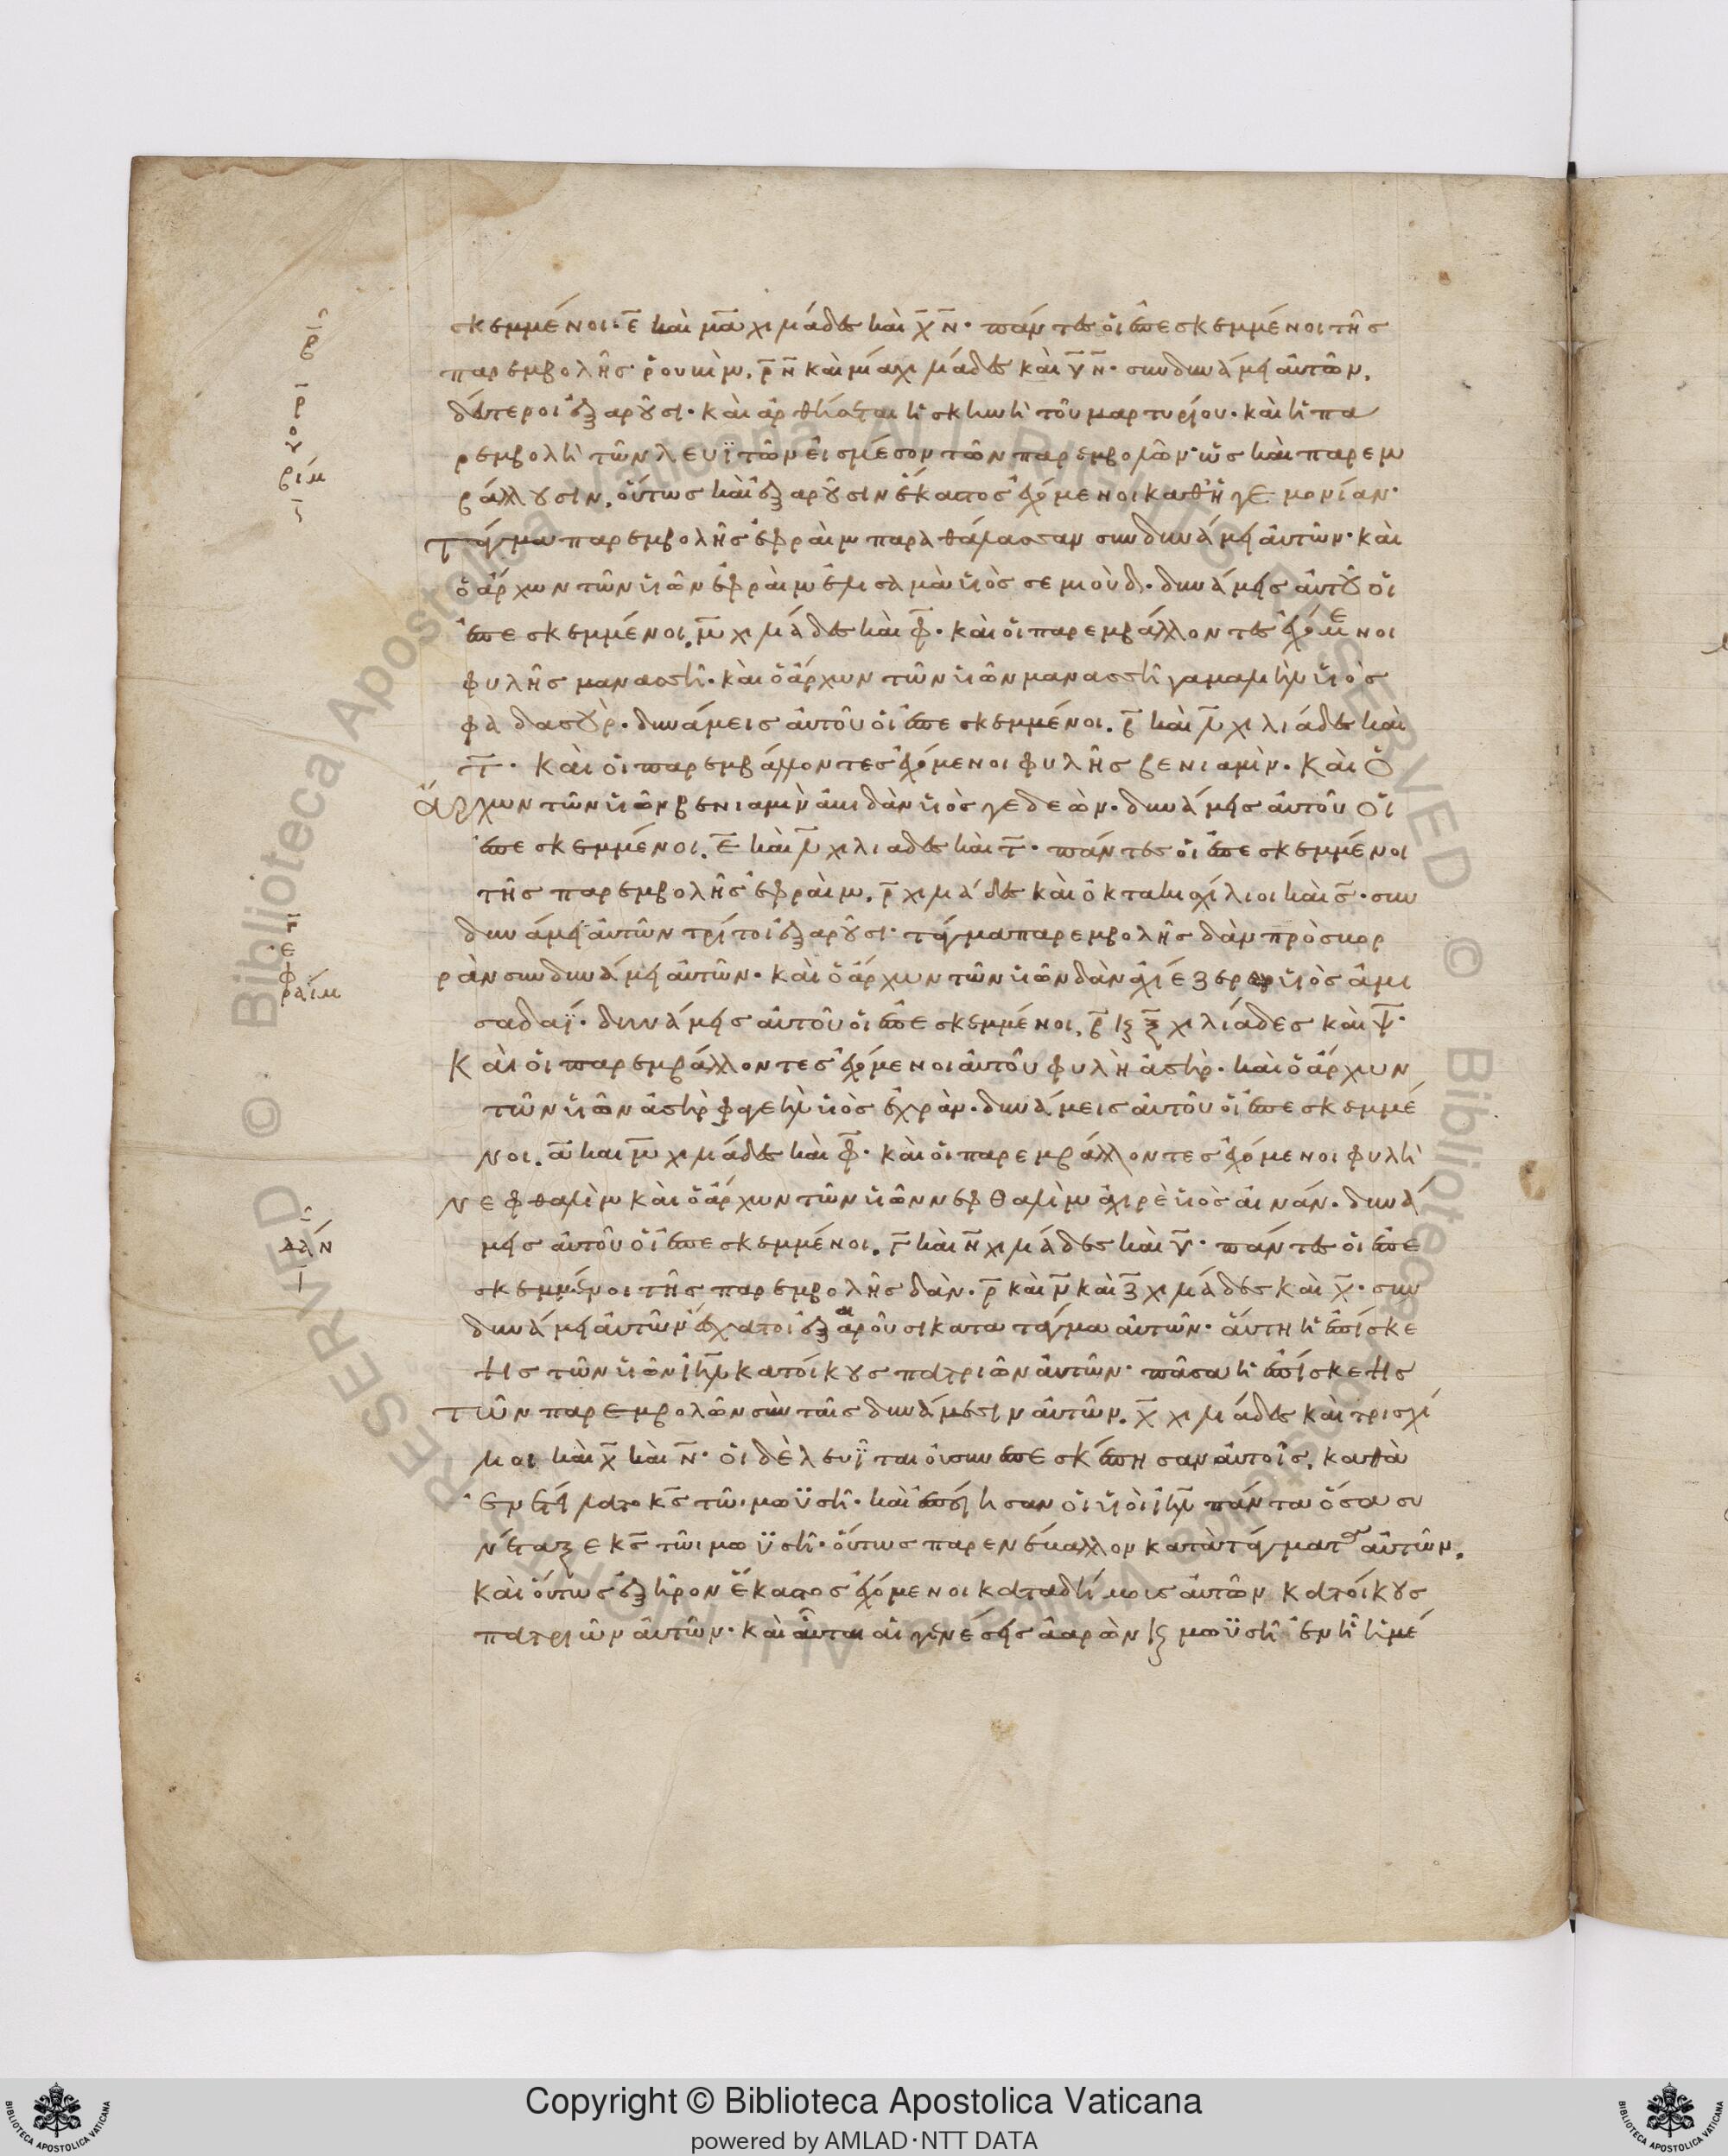 σκεμμένοι· ε̄ καὶ μ̄ χιλιάδες καὶ χ̄ ν̄· πάντες οἱ ἐπεσκεμμένοι τῆς
παρεμβολῆς ῥουβὶμ. ρ̄ ν̄ καὶ μία χιλιάδες καὶ ῡ ν̄· σὺν δυνάμει αὐτῶν.
δεύτεροι ἐξαροῦσι· καὶ ἀρθήσεται ἡ σκηνὴ τοῦ μαρτυρίου· καὶ ἡ πα
ρεμβολὴ τῶν λευϊτῶν εἰς μέσον τῶν παρεμβολῶν· ὡς καὶ παρεμ
βάλλουσιν. οὕτως καὶ ἐξαροῦσιν ἕκαστος ἐχόμενοι καθ' ἡγεμονίαν·
τάγμα παρεμβολῆς ἐφραὶμ παρὰ θάλασσαν σὺν δυνάμει αὐτῶν· καὶ
ὁ ἄρχων τῶν υἱῶν ἐφραὶμ ἐλισαμὰ υἱὸς σεμιοὺδ· δυνάμεις αὐτοῦ οἱ
ἐπεσκεμμένοι. μ̄ χιλιάδες καὶ φ̄· καὶ οἱ παρεμβάλλοντες ἐχόμενοι
φυλῆς μανασσῆ· καὶ ὁ ἄρχων τῶν υἱῶν μανασσῆ γαμαλιὴλ υἱὸς
φαδασοὺρ· δυνάμεις αὐτοῦ οἱ ἐπεσκεμμένοι. β̄ καὶ λ̄ χιλιάδες καὶ
σ̄· καὶ οἱ παρεμβάλλοντες ἐχόμενοι φυλῆς βενιαμὶν· καὶ ὁ
ἄρχων τῶν υἱῶν βενιαμὶν ἀβιδὰν υἱὸς γεδεὼν· δυνάμεις αὐτοῦ οἱ
ἐπεσκεμμένοι. ε̄ καὶ λ̄ χιλιάδες καὶ ῡ· πάντες οἱ ἐπεσκεμμένοι
τῆς παρεμβολῆς ἐφραὶμ. ρ̄ χιλιάδες καὶ ὀκτακισχίλιοι καὶ ρ̄· σὺν
δυνάμει αὐτῶν τρίτοι ἐξαροῦσι· τάγμα παρεμβολῆς δὰν πρὸς βορ
ρὰν σὺν δυνάμει αὐτῶν· καὶ ὁ ἄρχων τῶν υἱῶν δὰν ἀχιέζερ υἱὸς ἀμι
σαδαΐ· δυνάμεις αὐτοῦ οἱ ἐπεσκεμμένοι. β̄ κ(αὶ) ξ̄ χιλιάδες καὶ ψ̄·
Καὶ οἱ παρεμβάλλοντες ἐχόμενοι αὐτοῦ φυλὴ ἀσὴρ· καὶ ὁ ἄρχων
τῶν υἱῶν ἀσὴρ φαγεὴλ υἱὸς ἐχρὰν· δυνάμεις αὐτοῦ οἱ ἐπεσκεμμέ
νοι. ᾱ καὶ μ̄ χιλιάδες καὶ φ̄· καὶ οἱ παρεμβάλλοντες ἐχόμενοι φυλὴ
νεφθαλὶμ καὶ ὁ ἄρχων τῶν υἱῶν νεφθαλὶμ ἀχιρὲ υἱὸς αἰνάν· δυνά
μεις αὐτοῦ οἱ ἐπεσκεμμένοι. γ̄ καὶ ν̄ χιλιάδες καὶ ῡ· πάντες οἱ ἐπε
σκεμμένοι τῆς παρεμβολῆς δὰν· ρ̄ καὶ ν̄ καὶ ζ̄ χιλιάδες καὶ χ̄· σὺν
δυνάμει αὐτῶν ἔσχατοι ἐξαροῦσι κατὰ τάγμα αὐτῶν· αὕτη ἡ ἐπίσκε
ψις τῶν υἱῶν ἰηλ κατ' οἴκους πατριῶν αὐτῶν· πᾶσα ἡ ἐπίσκεψις
τῶν παρεμβολῶν σὺν ταῖς δυνάμεσιν αὐτῶν. χ̄ χιλιάδες καὶ τρισχί
λιοι καὶ φ̄ καὶ ν̄· οἱ δὲ λευῖται οὐ συνεπεσκέπησαν αὐτοῖς. καθὰ
ἐνετείλατο κς τῶ μωϋσῆ· καὶ ἐποίησαν οἱ υἱοὶ ἰηλ πάντα ὅσα συ
νέταξε κς τῶι μωϋσῆ· οὕτως παρενέβαλλον κατὰ τάγματα αὐτῶν.
καὶ οὕτως ἐξῆρον ἕκαστος ἐχόμενοι κατὰ δήμοις αὐτῶν κατ' οἴκους
πατριῶν αὐτῶν· καὶ αὗται αἱ γενέσεις ἀαρὼν κ(αὶ) μωϋσῆ ἐν ἧ ἡμέ
ρουβίμ
ἐφραίμ
δάν
Copyright © Biblioteca Apostolica Vaticana
powered by AMLAD·NTT DATA